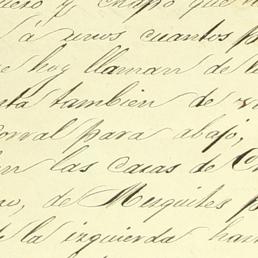 y chapo que
á unos cuantos p
e hoy llaman de l
nta tambien de
orral para abajo,
en las casas de C
de Mezquites p
de la izquierda ha